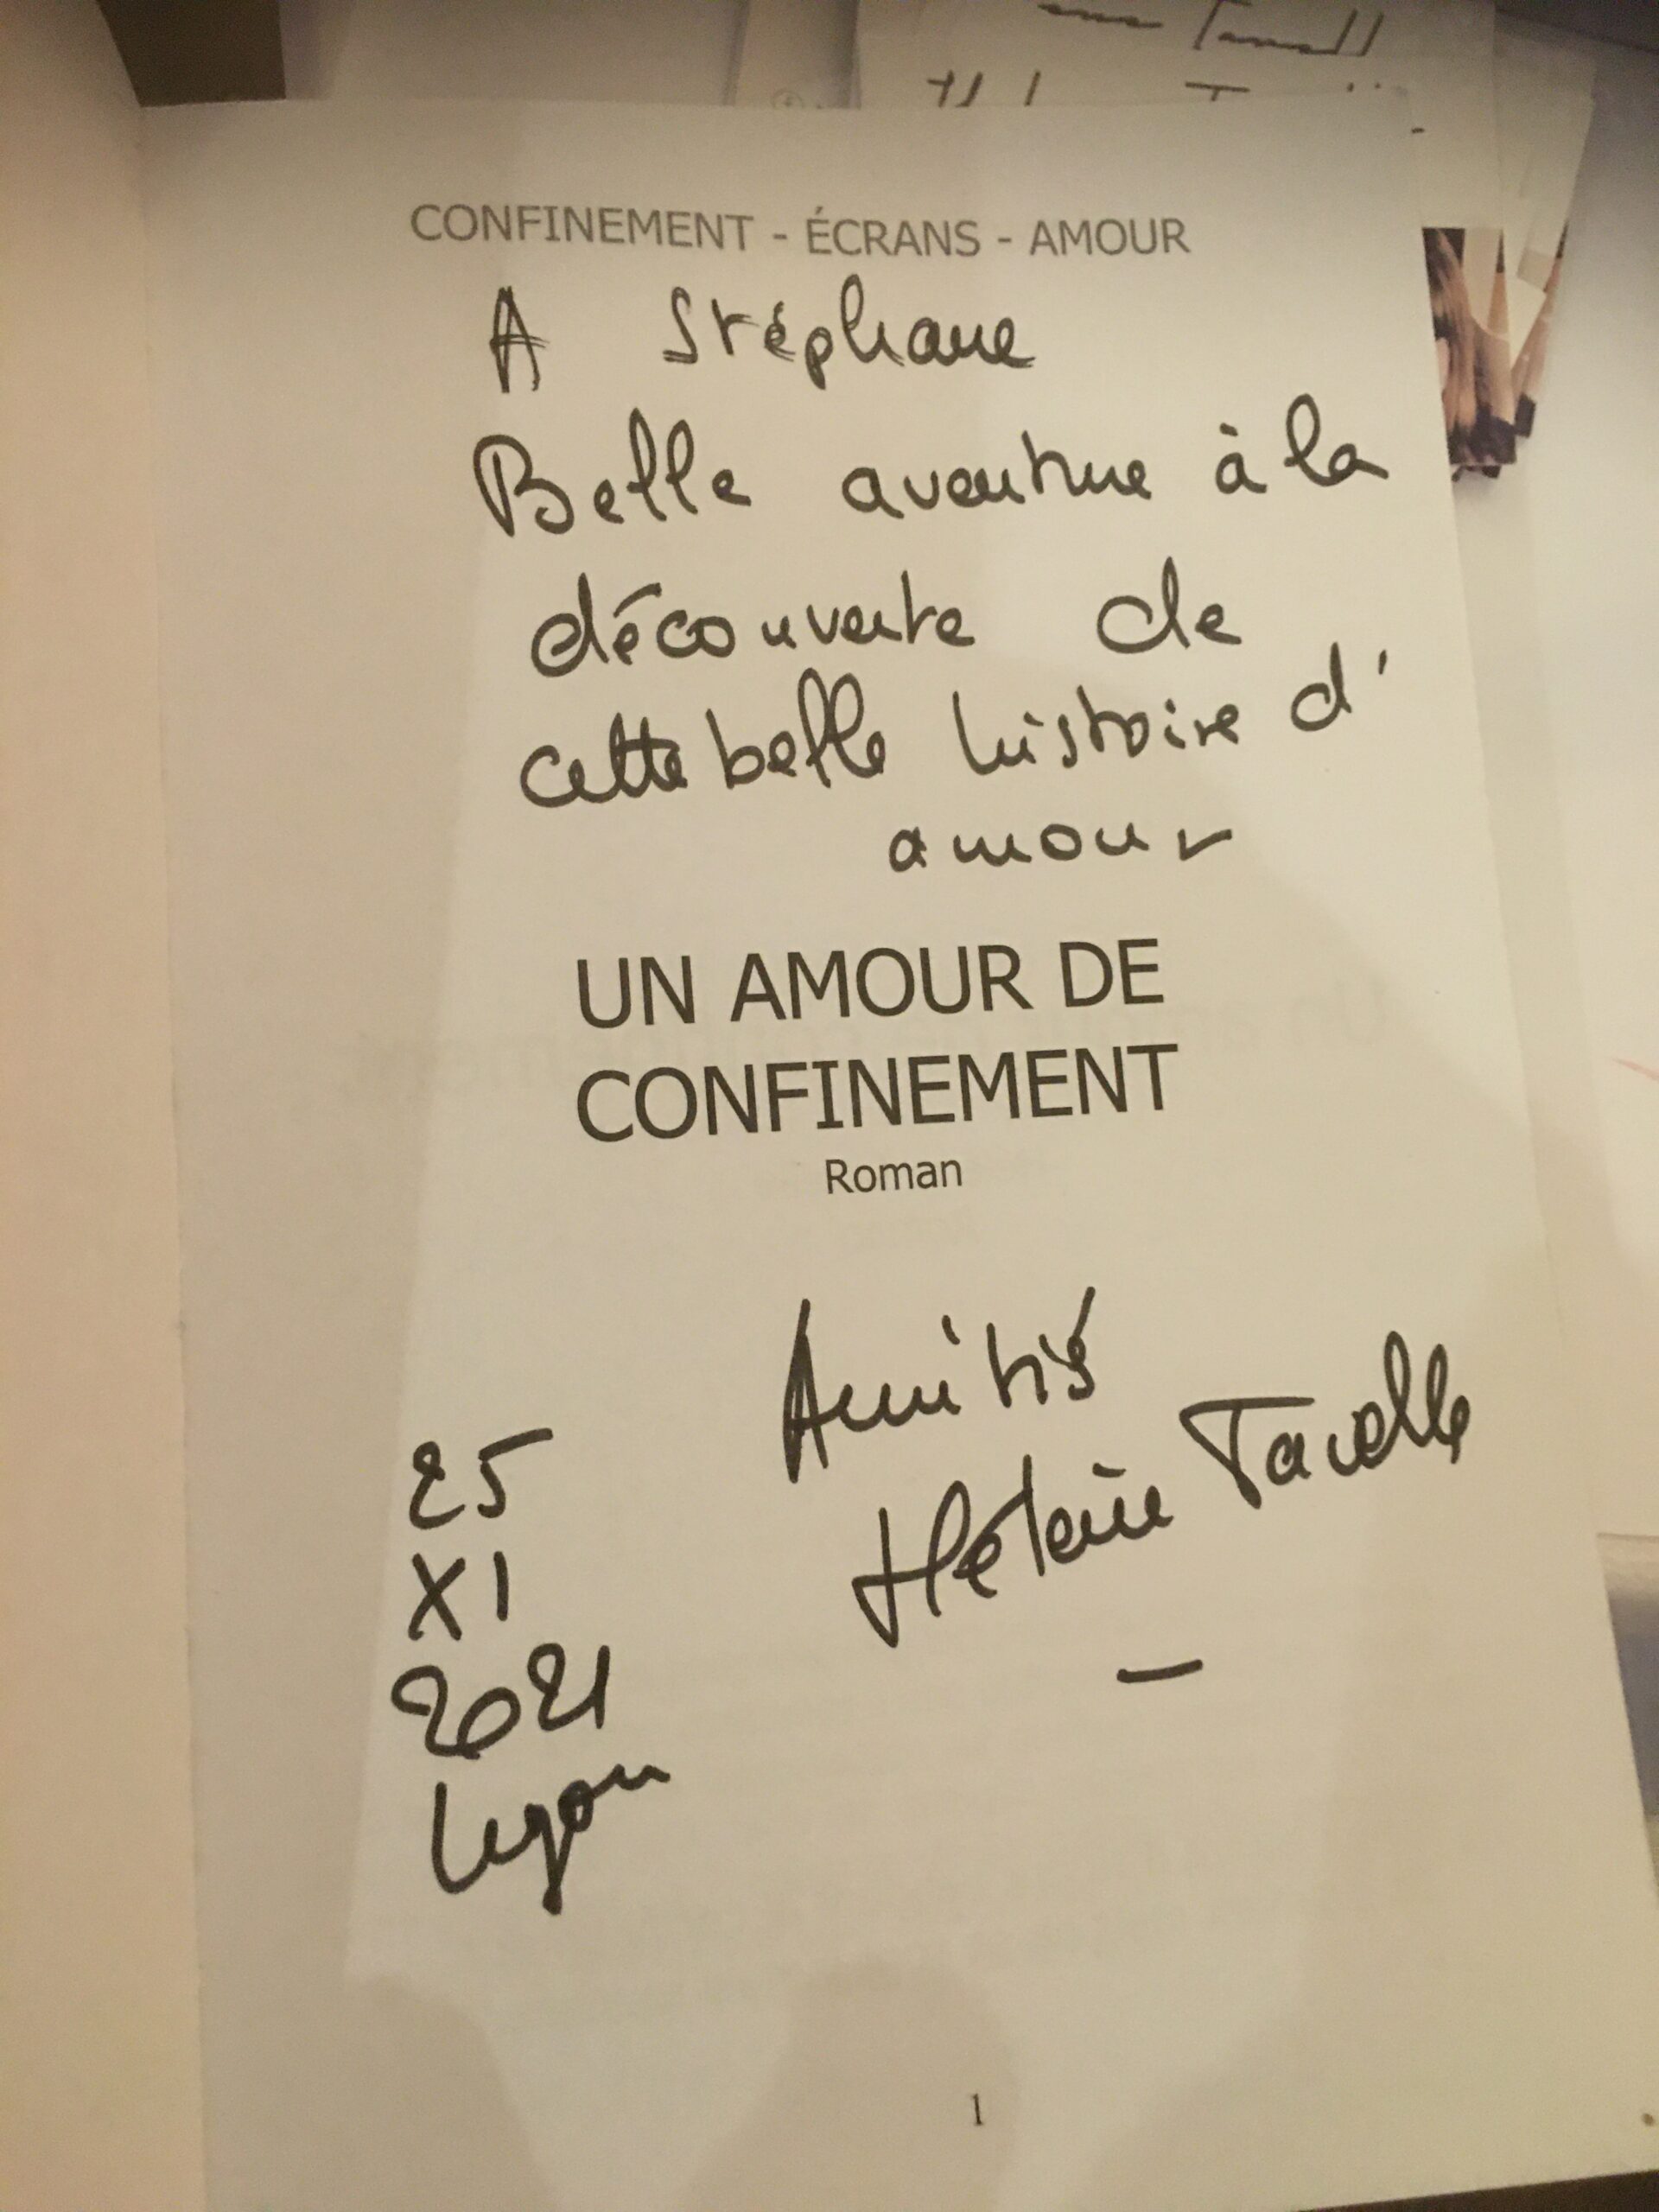 CONFINEMENT - ÉCRANS - AMOUR
A Stéphane
Belle aventure à la
découverte de
cette belle histoire d'
amour
UN AMOUR DE
CONFINEMENT
Roman
Amitié
Hélène Tavelle
25
XI
2021
Lyon
1